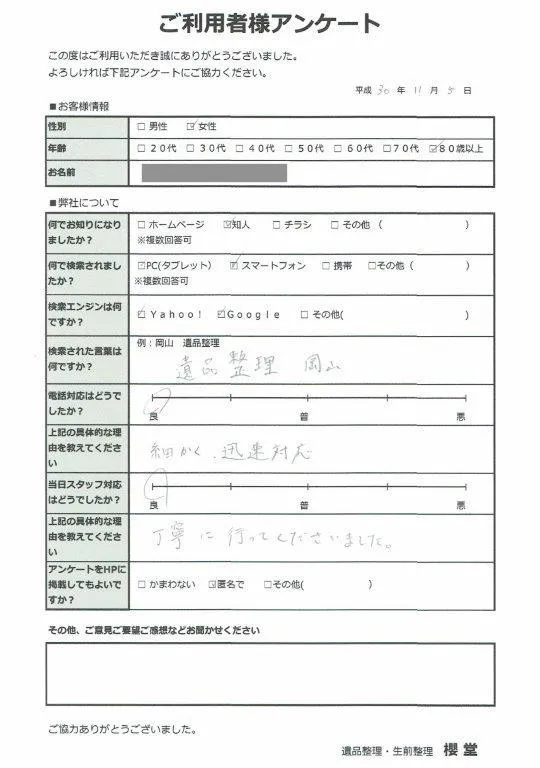 ご利用者様アンケート
この度はご利用いただき誠にありがとうございました。
よろしければ下記アンケートにご協力ください。
平成 30 年 11 月 5 日
■お客様情報
性別 □男性 ☑女性
年齢 □20代 □30代 □40代 □50代 □60代 □70代 ☑80歳以上
お名前
■弊社について
何でお知りになりましたか? □ホームページ ☑知人 □チラシ □その他 ( )
※複数回答可
何で検索されましたか? ☑PC(タブレット) ☑スマートフォン □携帯 □その他 ( )
※複数回答可
検索エンジンは何ですか? ☑Yahoo! ☑Google □その他( )
検索された言葉は何ですか? 例:岡山 遺品整理
遺品整理 岡山
電話対応はどうでしたか? 良 普 悪
上記の具体的な理由を教えてください 細かく、迅速対応
当日スタッフ対応はどうでしたか? 良 普 悪
上記の具体的な理由を教えてください 丁寧に行ってくださいました。
アンケートをHPに掲載してもよいですか? □かまわない ☑匿名で □その他( )
その他、ご意見ご要望ご感想などお聞かせください
ご協力ありがとうございました。
遺品整理・生前整理 櫻堂